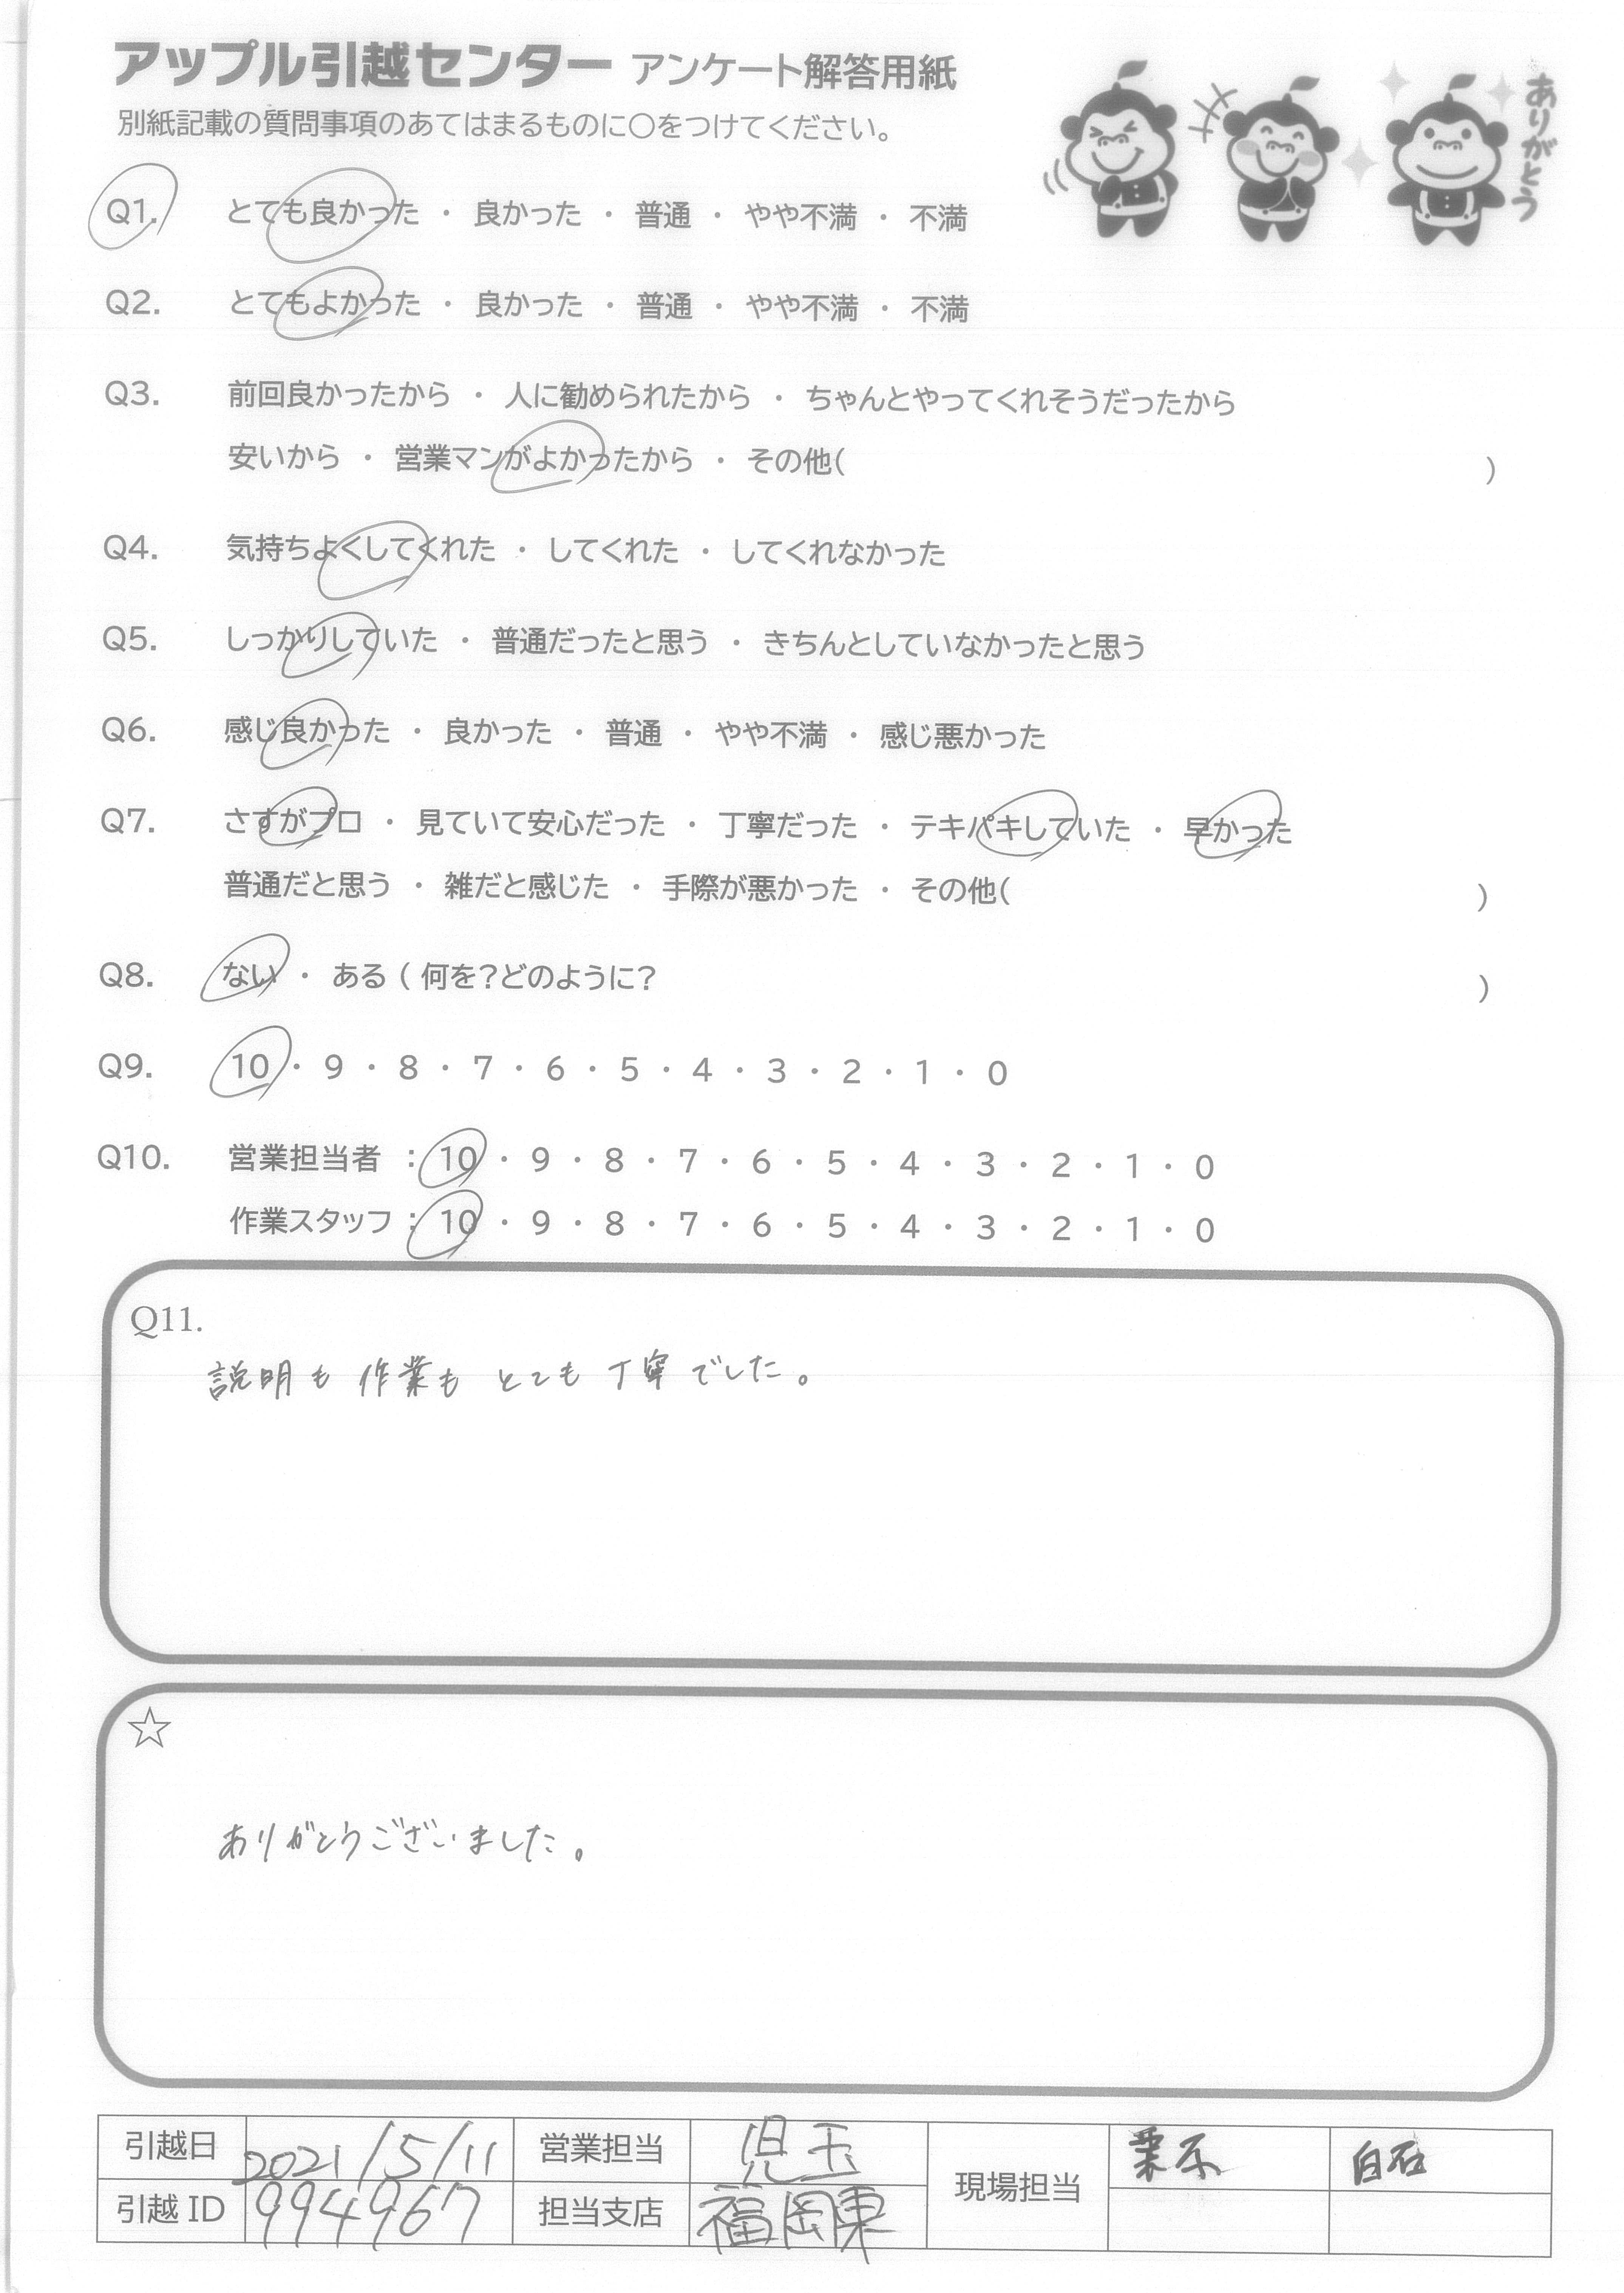 アップル引越センター アンケート解答用紙
別紙記載の質問事項のあてはまるものに〇をつけてください。
ありがとう
Q1. とても良かった ・ 良かった ・ 普通 ・ やや不満 ・ 不満
Q2. とてもよかった ・ 良かった ・ 普通 ・ やや不満 ・ 不満
Q3. 前回良かったから ・ 人に勧められたから ・ ちゃんとやってくれそうだったから
安いから ・ 営業マンがよかったから ・ その他( )
Q4. 気持ちよくしてくれた ・ してくれた ・ してくれなかった
Q5. しっかりしていた ・ 普通だったと思う ・ きちんとしていなかったと思う
Q6. 感じ良かった ・ 良かった ・ 普通 ・ やや不満 ・ 感じ悪かった
Q7. さすがプロ ・ 見ていて安心だった ・ 丁寧だった ・ テキパキしていた ・ 早かった
普通だと思う ・ 雑だと感じた ・ 手際が悪かった ・ その他( )
Q8. ない ・ ある ( 何を?どのように? )
Q9. 10 ・ 9 ・ 8 ・ 7 ・ 6 ・ 5 ・ 4 ・ 3 ・ 2 ・ 1 ・ 0
Q10. 営業担当者 : 10 ・ 9 ・ 8 ・ 7 ・ 6 ・ 5 ・ 4 ・ 3 ・ 2 ・ 1 ・ 0
作業スタッフ : 10 ・ 9 ・ 8 ・ 7 ・ 6 ・ 5 ・ 4 ・ 3 ・ 2 ・ 1 ・ 0
Q11.
説明も 作業も とても 丁寧 でした。
☆
ありがとうございました。
引越日 2021/5/11 営業担当 児玉 現場担当 白石
引越 ID 994967 担当支店 福岡東